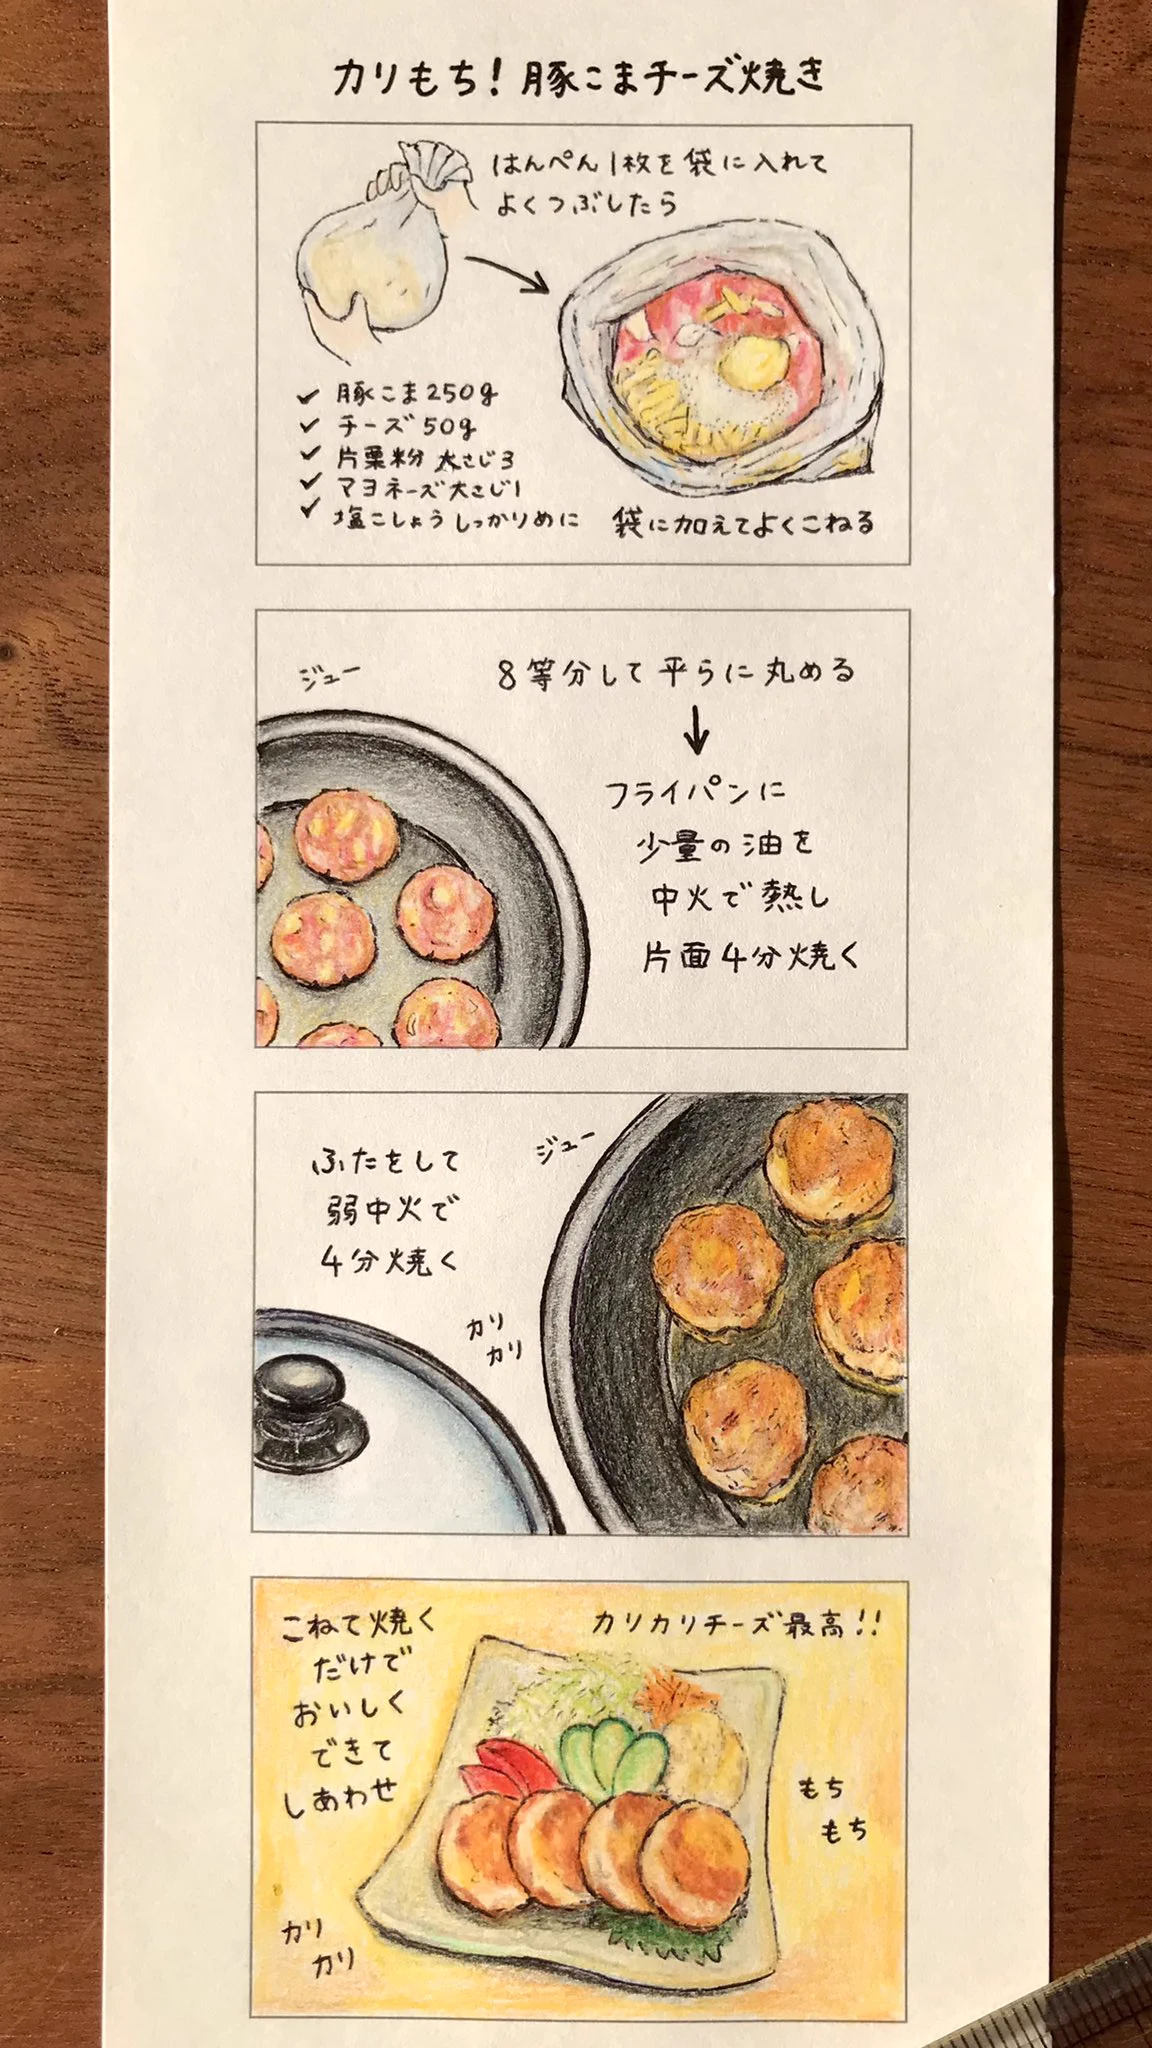 カリもち！豚こまチーズ焼き
はんぺん1枚を袋に入れて
よくつぶしたら
✓ 豚こま250g
✓ チーズ50g
✓ 片栗粉 大さじ3
✓ マヨネーズ大さじ1
✓ 塩こしょうしっかりめに
袋に加えてよくこねる
ジュー
8等分して平らに丸める
↓
フライパンに
少量の油を
中火で熱し
片面4分焼く
ふたをして
弱中火で
4分焼く
ジュー
カリ
カリ
こねて焼く
だけで
おいしく
できて
しあわせ
カリカリチーズ最高!!
もち
もち
カリ
カリ